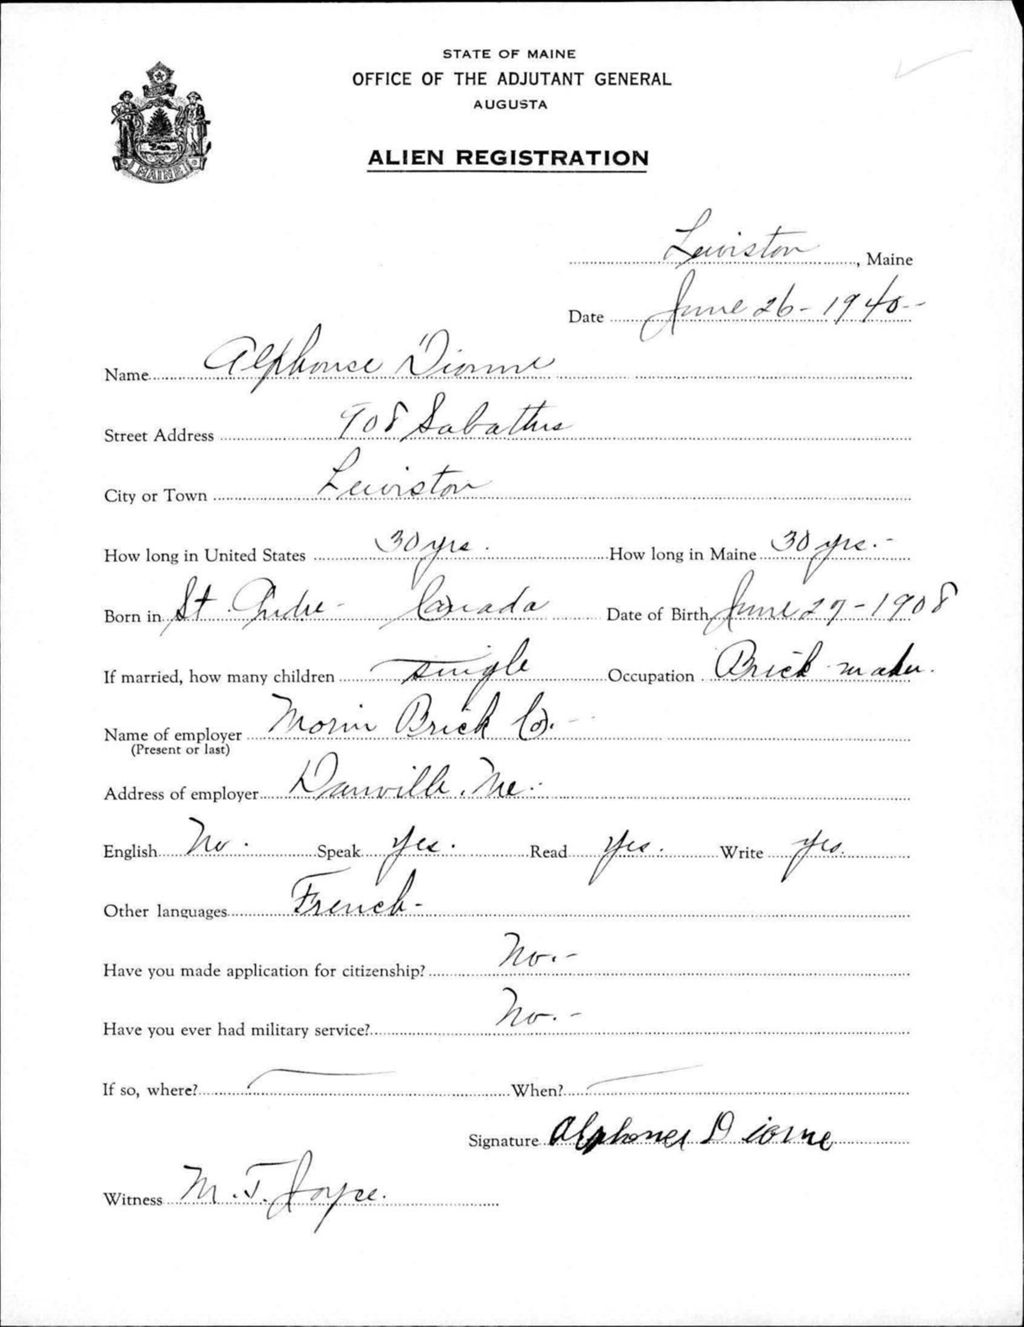 STATE OF MAINE
OFFICE OF THE ADJUTANT GENERAL
AUGUSTA
MAINE
ALIEN REGISTRATION
Lewiston, Maine
Date June 26-1940-
Name Alphonse Dionne
Street Address 908 Sabattus
City or Town Lewiston
How long in United States 30 yrs. How long in Maine 30 yrs.-
Born in St. Andre - Canada Date of Birth June 27-1908
If married, how many children single Occupation Brick maker.
Name of employer Morin Brick Co. -
(Present or last)
Address of employer Danville, Me.-
English No. Speak yes. Read yes. Write yes.
Other languages French-
Have you made application for citizenship? No.-
Have you ever had military service? No.-
If so, where? When?
Signature Alphones Dionne
Witness M.T. Joyce.